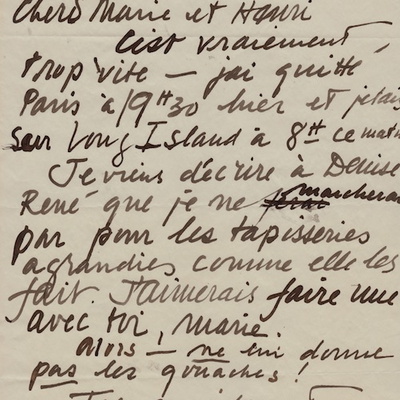 Chers Marie et Henri
C'est vraiment,
trop vite — j'ai quitté
Paris à 19H30 hier et j'étais
sur Long Island à 8H ce matin
Je viens d'écrire à Denise
René que je ne ferai marcherai
pas pour les tapisseries
agrandies comme elle les
fait. J'aimerais faire une
avec toi, Marie.
Alors — ne lui donne
pas les gouaches!